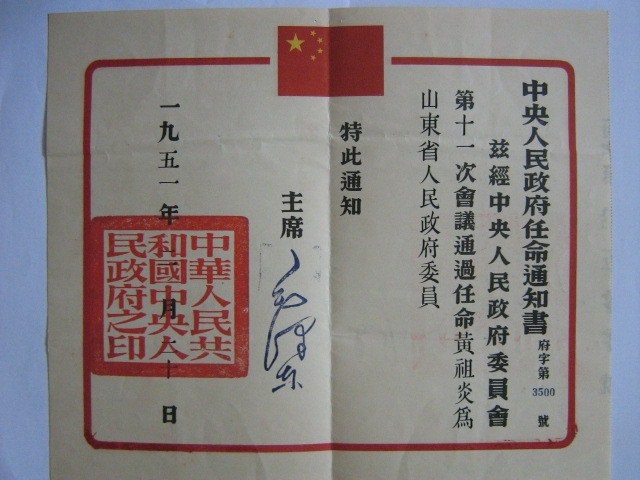 中央人民政府任命通知書
府字第3500號
茲經中央人民政府委員會
第十一次會議通過任命黃祖炎為
山東省人民政府委員
特此通知
主席
毛澤東
一九五一年一月二十日
中華人民共
和國中央人
民政府之印